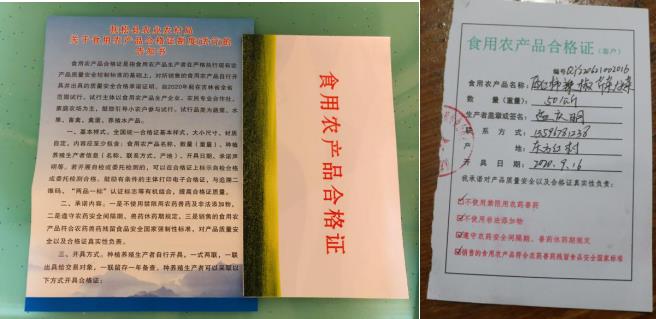 抚松县农业农村局
关于食用农产品合格证制度(试行)的
告知书
食用农产品合格证是指食用农产品生产者在严格执行现有
农产品质量安全控制标准的基础上，对所销售的食用农产品自行开
具并出具的质量安全合格承诺证明。自2020年起在吉林省全省
范围试行。试行主体以食用农产品生产企业、农民专业合作社、
家庭农场为主，鼓励引导小农户参与试行。试行品类为蔬菜、水
果、畜禽、禽蛋、养殖水产品。
一、基本样式。全国统一合格证基本样式，大小尺寸、材质
自定，内容应至少包含：食用农产品名称、数量（重量）、种植
养殖生产者信息（名称、联系方式、产地）、开具日期、承诺声
明等。若开展自检或委托检测的，可以在合格证上标示自检合格
或委托检测合格。鼓励有条件的主体打印电子合格证，与追溯二
维码、“两品一标”认证标志等有机结合，提高合格证质量。
二、承诺内容。一是不使用禁限用农药兽药及非法添加物，
二是遵守农药安全间隔期、兽药休药期规定，三是销售的食用农
产品符合农药兽药残留食品安全国家强制性标准，对产品质量安
全以及合格证真实性负责。
三、开具方式。种植养殖生产者自行开具，一式两联，一联
出具给交易对象，一联留存一年备查。种养殖生产者可以采取以
下方式开具合格证：
食用农产品合格证
食用农产品合格证（客户）
编号QYJ20621002016
食用农产品名称：
数量（重量）：50公斤
生产者盖章或签名：
联系方式：13596781238
产地：东方红村
开具日期：2020.9.16
我承诺对产品质量安全以及合格证真实性负责：
☑不使用禁限用农药兽药
☑不使用非法添加物
☑遵守农药安全间隔期、兽药休药期规定
☑销售的食用农产品符合农药兽药残留食品安全国家标准